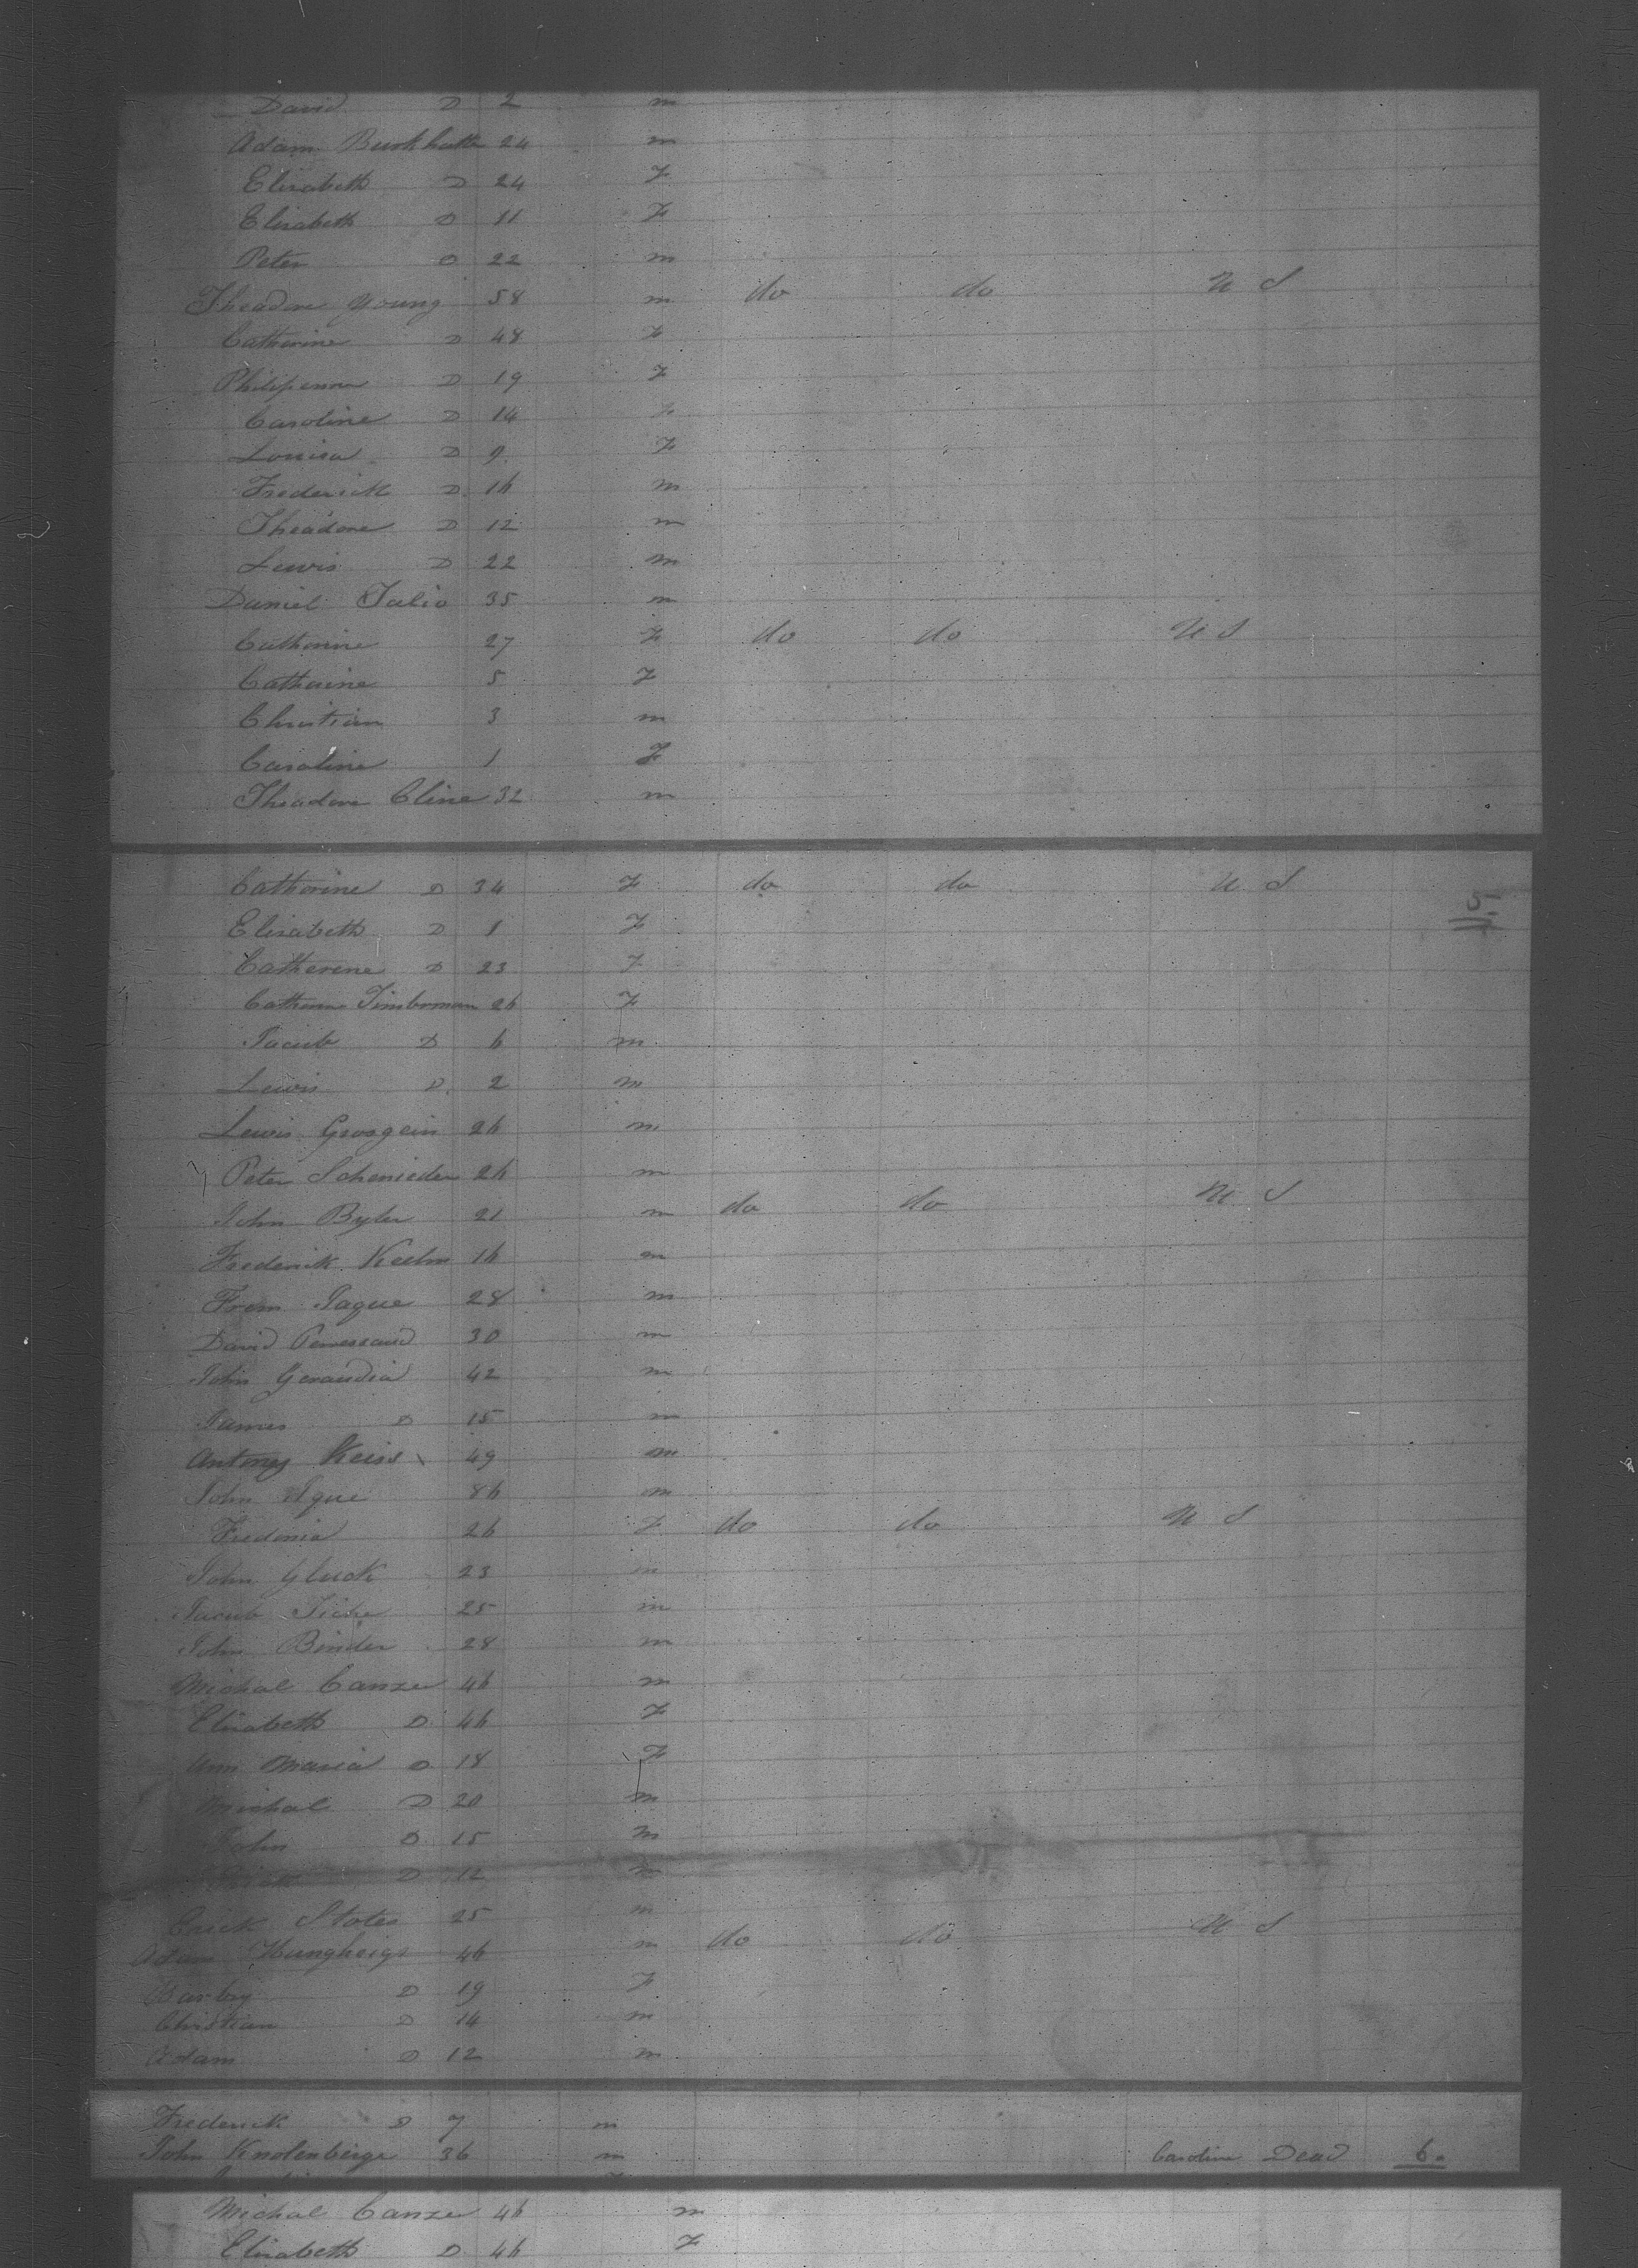 David D 2 m
Adam Burkhatte 24 m
Elisabeth D 24 F
Elisabeth D 11 F
Peter D 22 m
Theadore Young 58 m do do U S
Catherine D 48 F
Philipenna D 19 F
Caroline D 14 F
Louisa D 9 F
Frederick D 16 m
Theadore D 12 m
Lewis D 22 m
Daniel Talio 35 m
Catherine 27 F do do U S
Catharine 5 F
Christian 3 m
Caroline 1 F
Theadore Cline 32 m
Catherine D 34 F do do U S
5
Elisabeth D 1 F
Catherene D 23 F
Catherine Timberman 26 F
Jacub D 6 m
Lewis D 2 m
Lewis Grosgein 26 m
Peter Schenieder 26 m
John Byler 21 m do do U S
Frederick Keelm 16 m
From Jaque 28 m
David 30 m
John Geraudia 42 m
James D 15 m
Antony Keiss 49 m
John 86 m
Fredonia 26 F do do U S
John Gluck 23 m
Jacub 25 m
John Binder 28 m
Michal Canzer 46 m
Elisabeth D 46 F
Ann Maria D 18 F
Michal D 20 m
John D 15 m
D 12 m
Erick Stotes 25 m
Adam Hungheigs 46 m do do U S
Barbay D 19 F
Christian D 14 m
Adam D 12 m
Frederick D 7 m
John Knolenberge 36 m Caroline Dead 6.
Michal Canzer 46 m
Elisabeth D 46 F